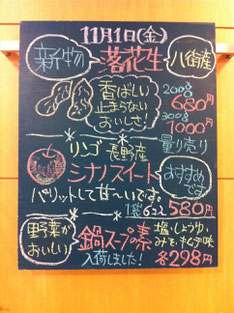 11月1日(金)
新物 落花生 八街産
香ばしい
止まらない
おいしさ!
200g
680円
300g
1000円
量り売り
リンゴ 長野産
シナノスイート
おすすめ
です
パリットして甘〜いです。
1袋6コ入 580円
野菜が
おいしい
鍋スープの素
入荷しました!
塩・しょうゆ、
みそ・キムチ味
各298円